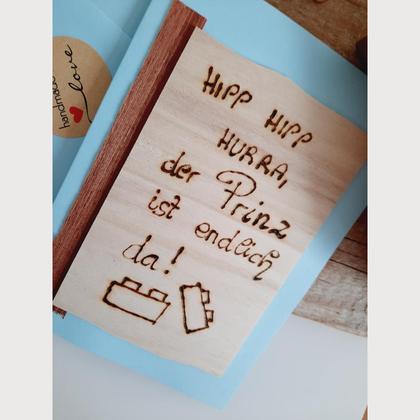 HIPP HIPP
HURRA,
der Prinz
ist endlich
da!
handmade
love